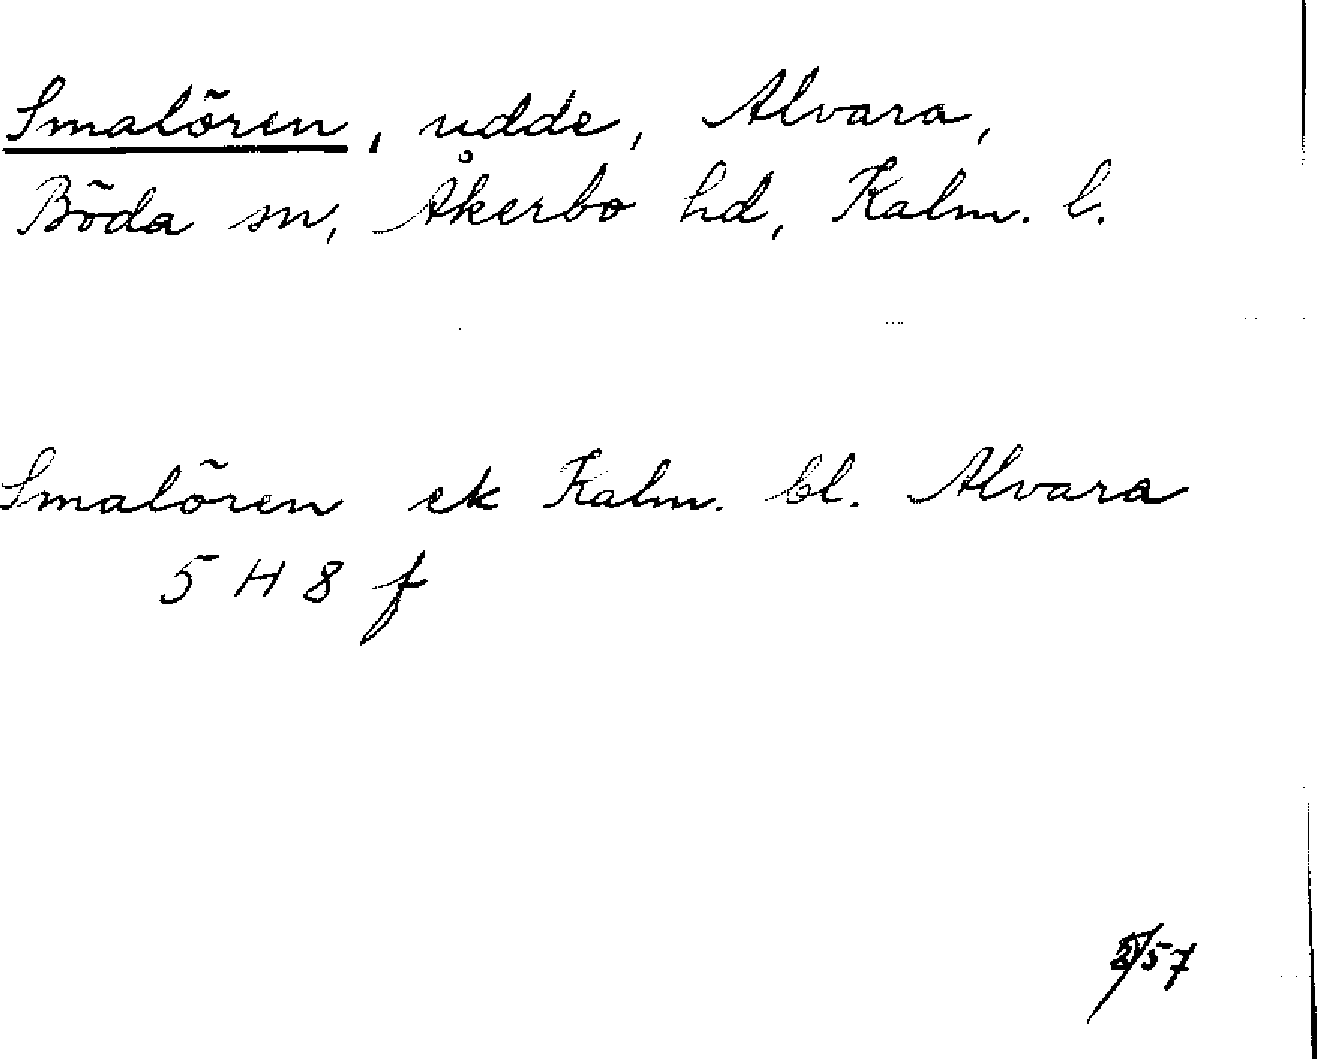 Smalören, udde, Alvara,
Böda sn, Åkerbo hd, Kalm. l.
Smalören ek Kalm. bl. Alvara
5 H 8 f